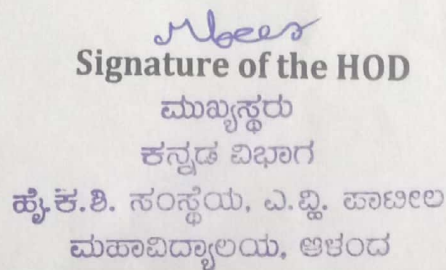 Signature of the HOD
ಮುಖ್ಯಸ್ಥರು
ಕನ್ನಡ ವಿಭಾಗ
ಹೈ.ಕ.ಶಿ. ಸಂಸ್ಥೆಯ, ಎ.ವ್ಹಿ. ಪಾಟೀಲ
ಮಹಾವಿದ್ಯಾಲಯ, ಆಳಂದ